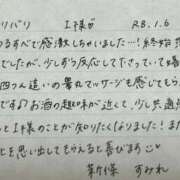 リバリ I様♡ R8.1.6
るすべで感激しちゃいました…！終始
でしたが、少しずつ反応してて下さっていて嬉
四つん這いの睾丸マッサージも感じてもら
です♪お酒の趣味が近しくて、少し共通
っとI様のことが知りたくなりました！ま
とを思い出してもらえると喜びます
新橋 すみれ